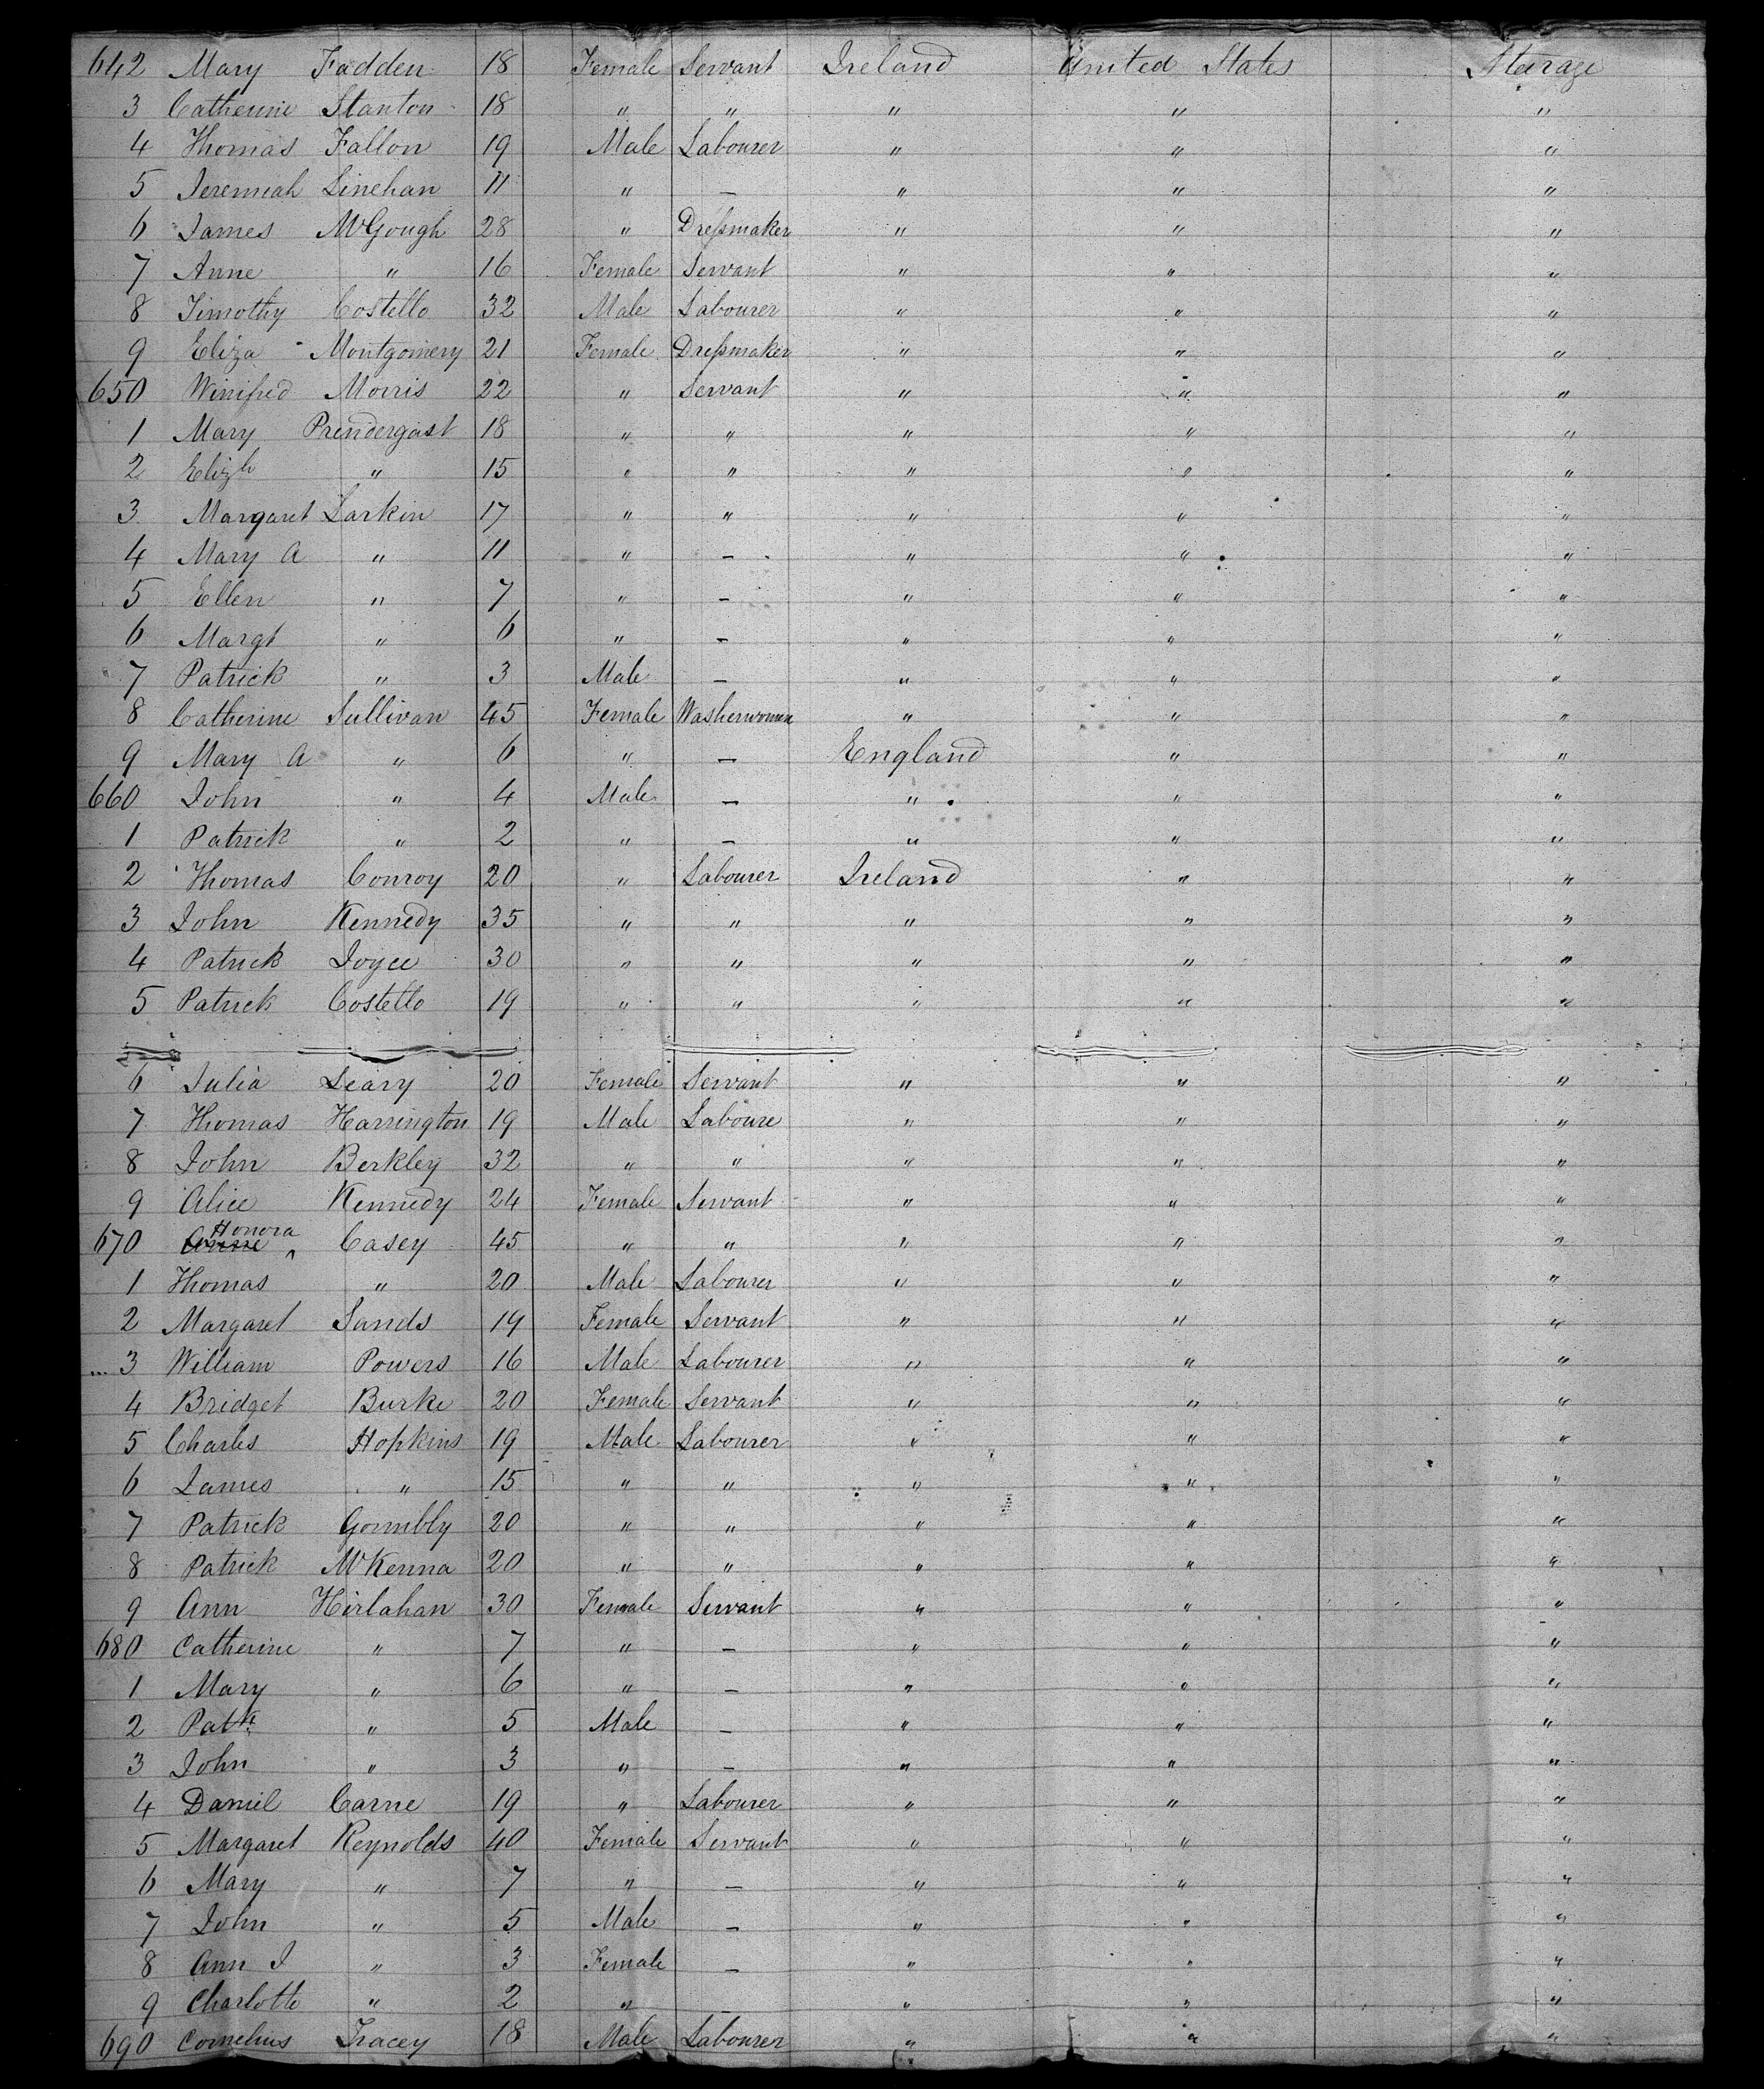 642 Mary Fadden 18 Female Servant Ireland United States Steerage
3 Catherine Stanton 18 " " " " "
4 Thomas Fallon 19 Male Labourer " " "
5 Jeremiah Linehan 11 " - " " "
6 James McGough 28 " Dressmaker " " "
7 Anne " 16 Female Servant " " "
8 Timothy Costello 32 Male Labourer " " "
9 Eliza Montgomery 21 Female Dressmaker " " "
650 Winifred Morris 22 " Servant " " "
1 Mary Prendergast 18 " " " " "
2 Elizh " 15 " " " " "
3 Margaret Larkin 17 " " " " "
4 Mary A " 11 " - " " "
5 Ellen " 7 " - " " "
6 Margt " 6 " - " " "
7 Patrick " 3 Male - " " "
8 Catherine Sullivan 45 Female Washerwoman " " "
9 Mary A " 6 " - England " "
660 John " 4 Male - " " "
1 Patrick " 2 " - " " "
2 Thomas Conroy 20 " Labourer Ireland " "
3 John Kennedy 35 " " " " "
4 Patrick Joyce 30 " " " " "
5 Patrick Costello 19 " " " " "
6 Julia Leary 20 Female Servant " " "
7 Thomas Harrington 19 Male Laboure " " "
8 John Berkley 32 " " " " "
9 Alice Kennedy 24 Female Servant " " "
670 Anne Honora Casey 45 " " " " "
1 Thomas " 20 Male Labourer " " "
2 Margaret Sands 19 Female Servant " " "
3 William Powers 16 Male Labourer " " "
4 Bridget Burke 20 Female Servant " " "
5 Charles Hopkins 19 Male Labourer " " "
6 James " 15 " " " " "
7 Patrick 20 " " " " "
8 Patrick McKenna 20 " " " " "
9 Ann Hirlahan 30 Female Servant " " "
680 Catherine " 7 " - " " "
1 Mary " 6 " - " " "
2 Patk " 5 Male - " " "
3 John " 3 " - " " "
4 Daniel Carne 19 " Labourer " " "
5 Margaret Reynolds 40 Female Servant " " "
6 Mary " 7 " - " " "
7 John " 5 Male - " " "
8 Ann J " 3 Female - " " "
9 Charlotte " 2 " - " " "
690 Cornelius Tracey 18 Male Labourer " " "